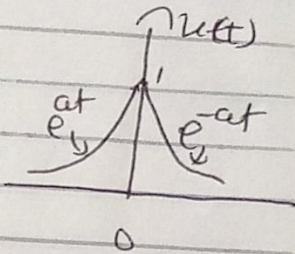 x(t)
1
e^{at} e^{-at}
0